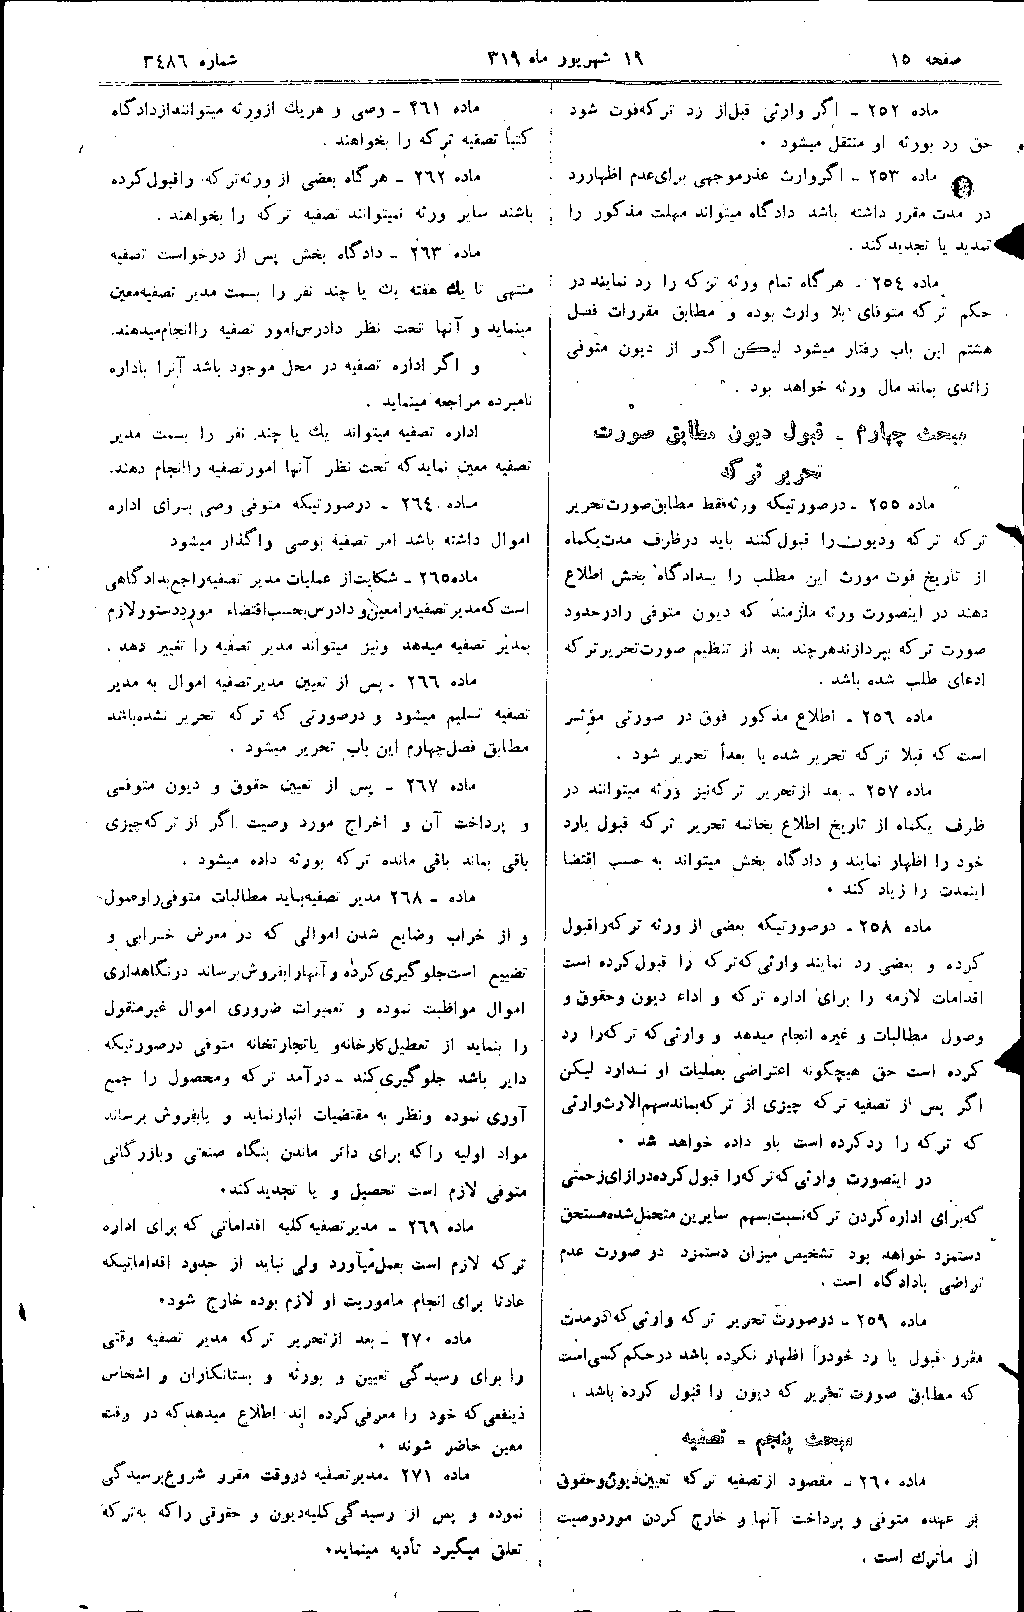 صفحه ١٥
١٩ شهریور ماه ٣١٩
شماره ٣٤٨٦
ماده ٢٥٢ - اگر وارثی قبل‌از رد ترکه‌فوت شود
حق رد بورثه او منتقل میشود .
ماده ٢٥٣ - اگروارث عذرموجهی برای‌عدم اظهاررد
در مدت مقرر داشته باشد دادگاه میتواند مهلت مذکور را
تمدید یا تجدیدکند .
ماده ٢٥٤ - هرگاه تمام ورثه ترکه را رد نمایند در
حکم ترکه متوفای بلا وارث بوده و مطابق مقررات فصل
هشتم این باب رفتار میشود لیکن اگر از دیون متوفی
زائدی بماند مال ورثه خواهد بود .
مبحث چهارم - قبول دیون مطابق صورت
تحریر ترکه
ماده ٢٥٥ - درصورتیکه ورثه‌فقط مطابق‌صورت‌تحریر
ترکه ترکه ودیون‌را قبول‌کنند باید درظرف مدت‌یکماه
از تاریخ فوت مورث این مطلب را بدادگاه بخش اطلاع
دهند در اینصورت ورثه ملزمند که دیون متوفی رادرحدود
صورت ترکه بپردازندهرچند بعد از تنظیم صورت‌تحریرترکه
ادعای طلب شده باشد .
ماده ٢٥٦ - اطلاع مذکور فوق در صورتی مؤثر
است که قبلا ترکه تحریر شده یا بعداً تحریر شود .
ماده ٢٥٧ - بعد ازتحریر ترکه‌نیز ورثه میتوانند در
ظرف یکماه از تاریخ اطلاع بخاتمه تحریر ترکه قبول یارد
خود را اظهار نمایند و دادگاه بخش میتواند به حسب اقتضا
اینمدت را زیاد کند .
ماده ٢٥٨ - درصورتیکه بعضی از ورثه ترکه‌راقبول
کرده و بعضی رد نمایند وارثی‌که‌ترکه را قبول‌کرده است
اقدامات لازمه را برای اداره ترکه و اداء دیون وحقوق و
وصول مطالبات و غیره انجام میدهد و وارثی‌که ترکه‌را رد
کرده است حق هیچگونه اعتراضی بعملیات او ندارد لیکن
اگر پس از تصفیه ترکه چیزی از ترکه‌بماندسهم‌الارث‌وارثی
که ترکه را ردکرده است باو داده خواهد شد .
در اینصورت وارثی‌که‌ترکه‌را قبول‌کرده‌درازای‌زحمتی
که‌برای اداره‌کردن ترکه‌نسبت‌بسهم سایرین متحمل‌شده‌مستحق
دستمزد خواهد بود تشخیص میزان دستمزد در صورت عدم
تراضی بادادگاه است .
ماده ٢٥٩ - درصورت تحریر ترکه وارثی‌که‌درمدت
مقرر قبول یا رد خودرا اظهار نکرده باشد درحکم‌کسی‌است
که مطابق صورت تحریر که دیون را قبول کرده باشد .
مبحث پنجم - تصفیه
ماده ٢٦٠ - مقصود ازتصفیه ترکه تعیین‌دیون‌وحقوق
بر عهده متوفی و پرداخت آنها و خارج کردن موردوصیت
از ماترك است .
ماده ٢٦١ - وصی و هریك ازورثه میتوانندازدادگاه
کتباً تصفیه ترکه را بخواهند .
ماده ٢٦٢ - هرگاه بعضی از ورثه‌ترکه راقبول‌کرده
باشند سایر ورثه نمیتوانند تصفیه ترکه را بخواهند .
ماده ٢٦٣ - دادگاه بخش پس از درخواست تصفیه
منتهی تا یك هفته یك یا چند نفر را بسمت مدیر تصفیه‌معین
مینماید و آنها تحت نظر دادرس‌امور تصفیه راانجام‌میدهند.
و اگر اداره تصفیه در محل موجود باشد آنرا باداره
نامبرده مراجعه مینماید .
اداره تصفیه میتواند یك یا چند نفر را بسمت مدیر
تصفیه معین نمایدکه تحت نظر آنها امورتصفیه راانجام دهند.
ماده ٢٦٤ - درصورتیکه متوفی وصی برای اداره
اموال داشته باشد امر تصفیه بوصی واگذار میشود
ماده٢٦٥ - شکایت‌از عملیات مدیر تصفیه‌راجع‌بدادگاهی
است‌که‌مدیرتصفیه‌رامعین‌و دادرس‌بحسب‌اقتضاء مورددستورلازم
بمدیر تصفیه میدهد ونیز میتواند مدیر تصفیه را تغییر دهد .
ماده ٢٦٦ - پس از تعیین مدیرتصفیه اموال به مدیر
تصفیه تسلیم میشود و درصورتی که ترکه تحریر نشده‌باشد
مطابق فصل‌چهارم این باب تحریر میشود .
ماده ٢٦٧ - پس از تعیین حقوق و دیون متوفی
و پرداخت آن و اخراج مورد وصیت اگر از ترکه‌چیزی
باقی بماند باقی مانده ترکه بورثه داده میشود .
ماده - ٢٦٨ مدیر تصفیه‌باید مطالبات متوفی‌راوصول
و از خراب وضایع شدن اموالی که در معرض خرابی و
تضییع است‌جلوگیری‌کرده وآنهارابفروش‌برساند درنگاهداری
اموال مواظبت نموده و تعمیرات ضروری اموال غیرمنقول
را بنماید از تعطیل‌کارخانه‌و یاتجارتخانه متوفی درصورتیکه
دایر باشد جلوگیری‌کند - درآمد ترکه ومحصول را جمع
آوری نموده ونظر به مقتضیات انبارنماید و یابفروش برساند
مواد اولیه راکه برای دائر ماندن بنگاه صنعتی وبازرگانی
متوفی لازم است تحصیل و یا تجدیدکند.
ماده ٢٦٩ - مدیرتصفیه‌کلیه اقداماتی که برای اداره
ترکه لازم است بعمل‌میآورد ولی نباید از حدود اقداماتیکه
عادتا برای انجام ماموریت او لازم بوده خارج شود.
ماده ٢٧٠ - بعد ازتحریر ترکه مدیر تصفیه وقتی
را برای رسیدگی تعیین و بورثه و بستانکاران و اشخاص
ذینفعی‌که خود را معرفی‌کرده اند اطلاع میدهدکه در وقت
معین حاضر شوند .
ماده ٢٧١ - مدیرتصفیه دروقت مقرر شروع‌برسیدگی
نموده و پس از رسیدگی‌کلیه‌دیون و حقوقی راکه به‌ترکه
تعلق میگیرد تأدیه مینماید.